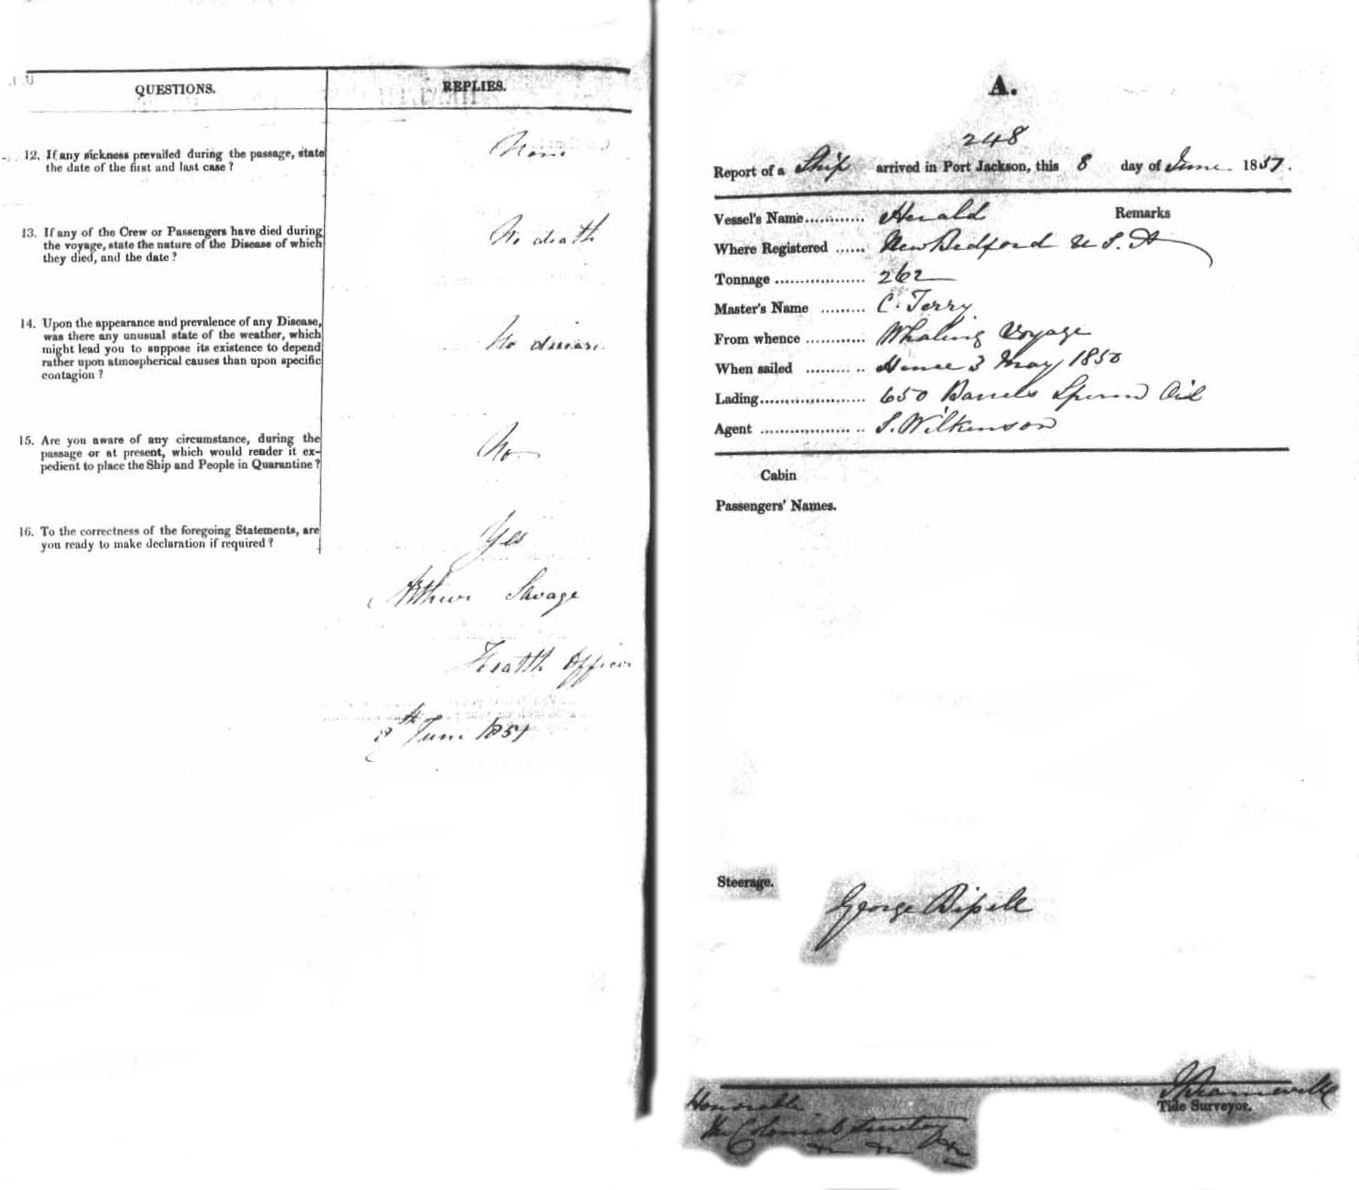 QUESTIONS.
REPLIES.
12. If any sickness prevailed during the passage, state
the date of the first and last case ?
None
13. If any of the Crew or Passengers have died during
the voyage, state the nature of the Disease of which
they died, and the date ?
No death
14. Upon the appearance and prevalence of any Disease,
was there any unusual state of the weather, which
might lead you to suppose its existence to depend
rather upon atmospherical causes than upon specific
contagion ?
No disease
15. Are you aware of any circumstance, during the
passage or at present, which would render it ex-
pedient to place the Ship and People in Quarantine ?
No
16. To the correctness of the foregoing Statements, are
you ready to make declaration if required ?
Yes
Arthur Savage
Health Officer
8th June 1851
A.
248
Report of a Ship arrived in Port Jackson, this 8 day of June 1851.
Vessel's Name............ Herald
Remarks
Where Registered ...... New Bedford U. S. A
Tonnage .................. 262
Master's Name ......... C. Terry
From whence ............ Whaling Voyage
When sailed ......... .. Hence 3 May 1850
Lading..................... 650 Barrels Sperm Oil
Agent .................. .. S. Wilkinson
Cabin
Passengers' Names.
Steerage.
George Bipell
Tide Surveyor.
Honorable
The Colonial Secretary